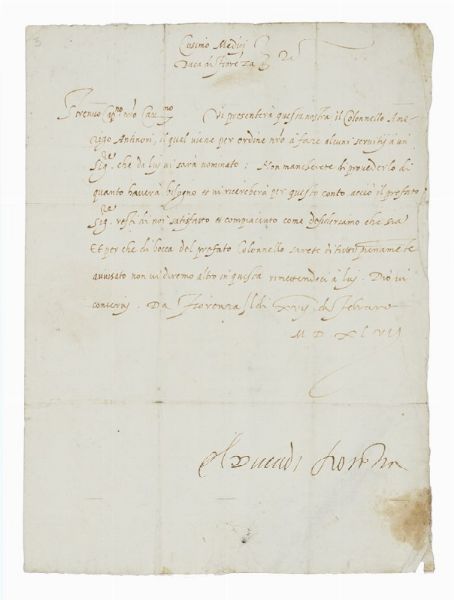 3
Cosimo Medici
Duca di Fiorēza
Strenuo Cap.no nr̃o Car.mo Vi presenterà questa nostra il Colonnello Ame-
rigo Antinori, il qual viene per ordine nr̃o à fare alcuni servitij à un
Sig.re che da lui vi sarà nominato: Non mancherete di provederlo di
quanto haverà bisogno et vi ricercherà per questo conto acciò il prefato
Sig.re resti di noi satisfatto et compiaciuto come desideriamo che sia
Et perche di bocca del prefato Colonnello sarete di tutto pienamente
avvisato non vi diremo altro in questa rimettendoci à lui. Dio vi
conservi. Da Fiorenza di di Febraro
M D XLVII
El Duca di Fiorenza